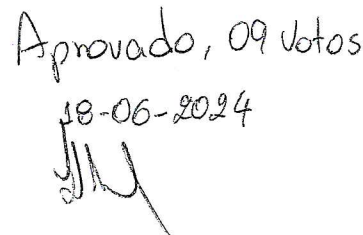 Aprovado, 09 votos
18-06-2024